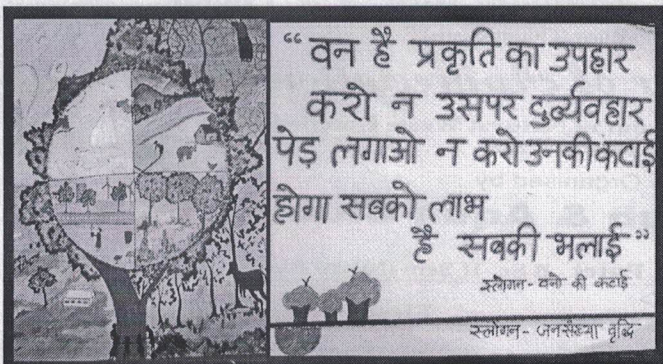 “ वन है प्रकृति का उपहार
करो न उसपर दुर्व्यवहार
पेड़ लगाओ न करो उनकी कटाई
होगा सबको लाभ
है सबकी भलाई ”
स्लोगन - वनो की कटाई
स्लोगन - जनसंख्या वृद्धि